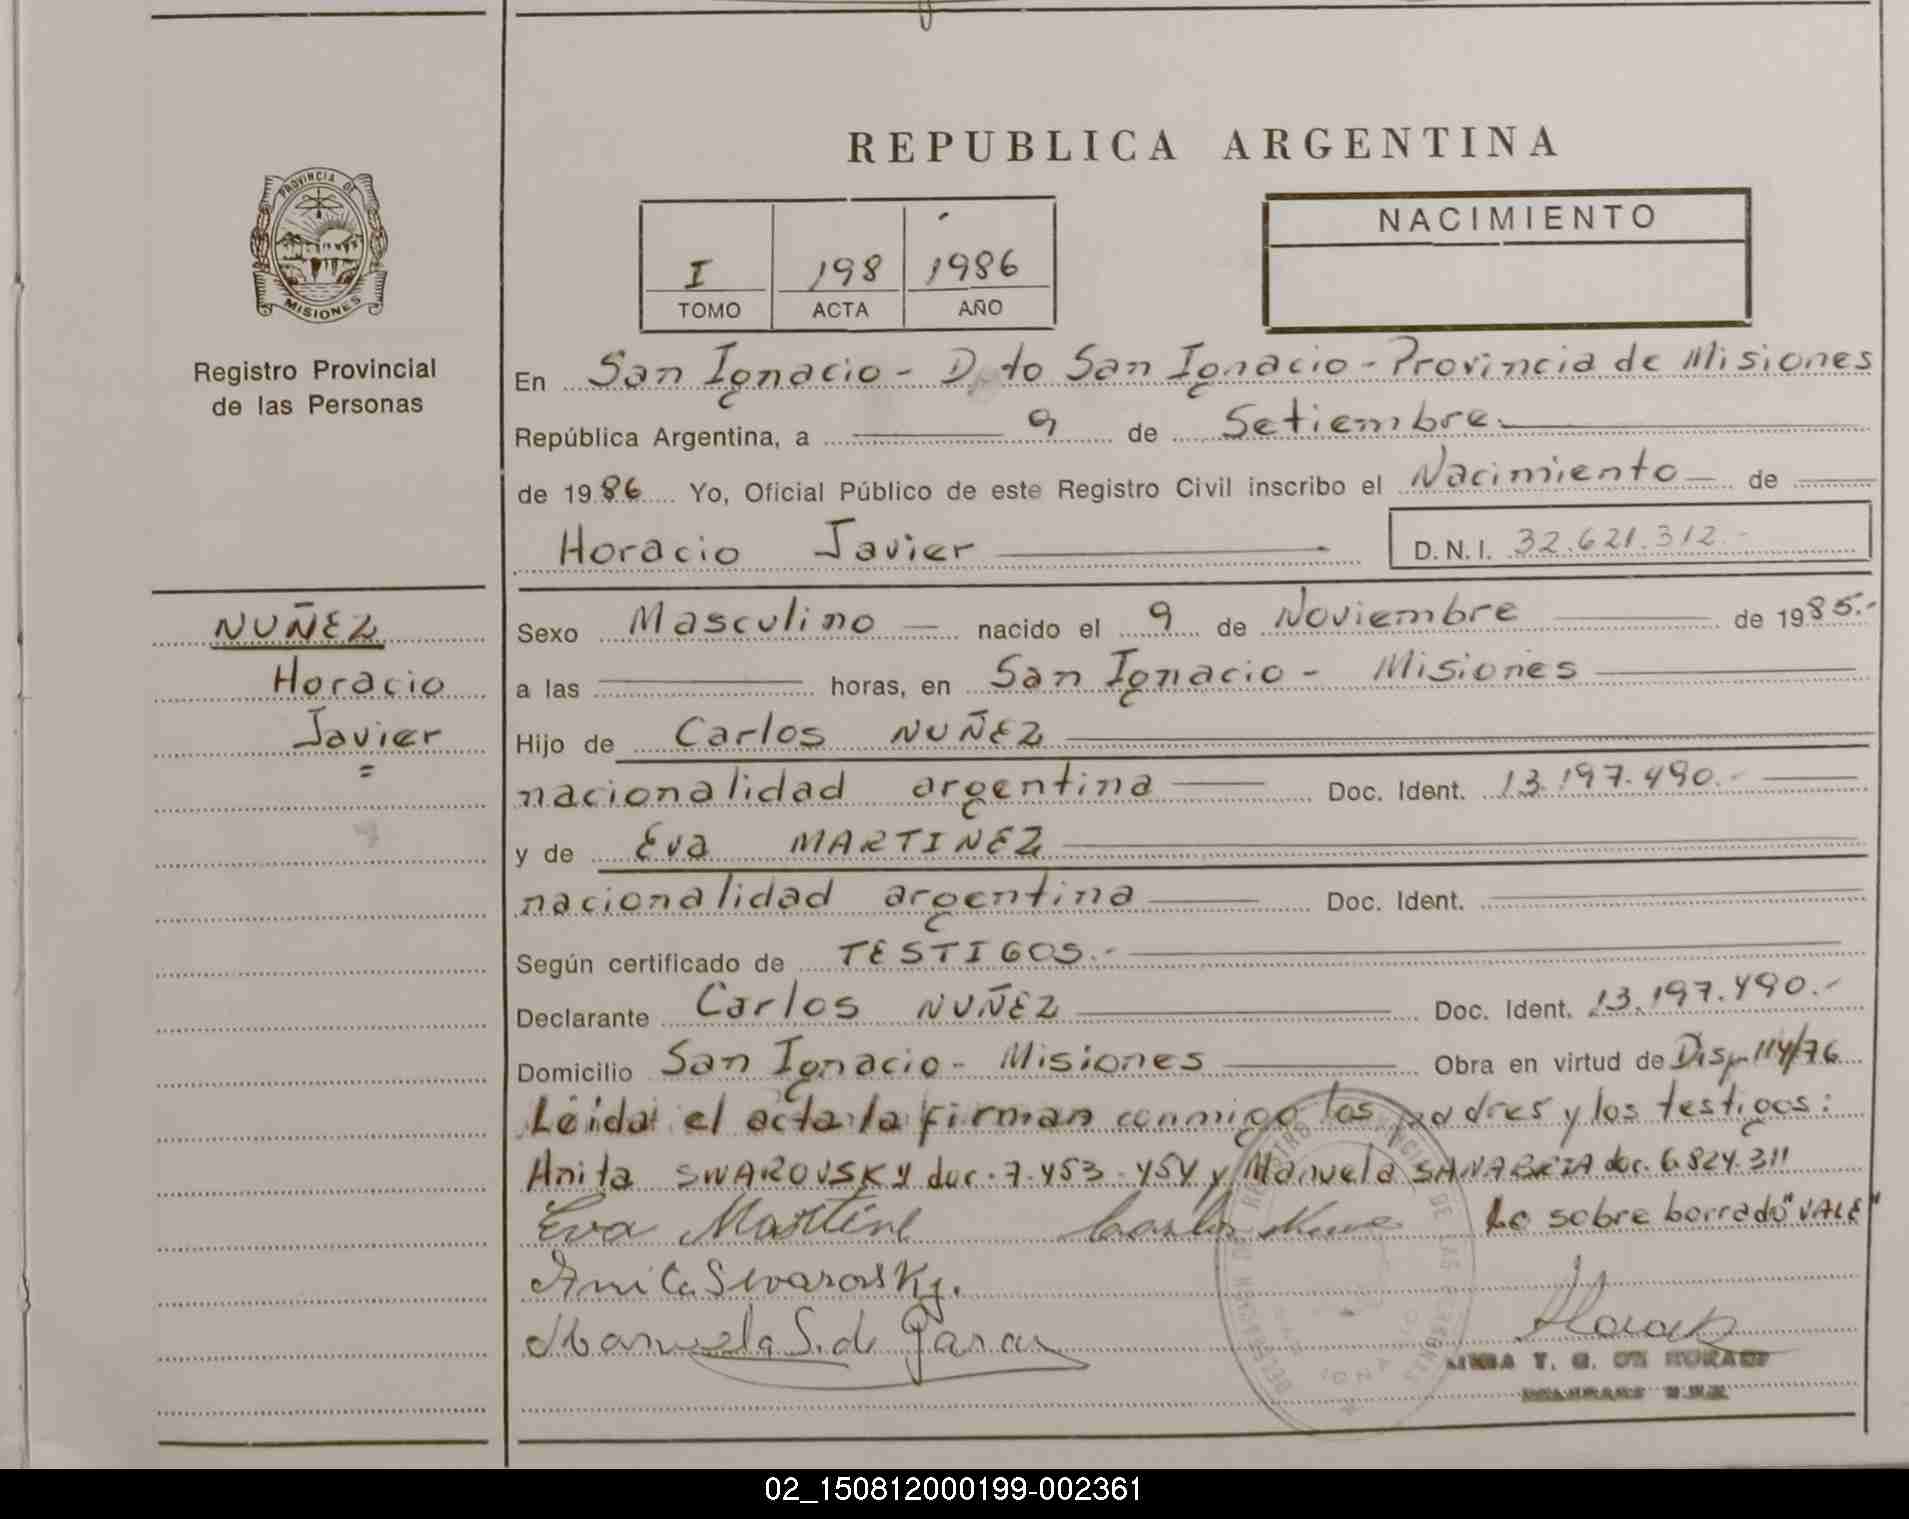 REPUBLICA ARGENTINA
PROVINCIA DE
MISIONES
Registro Provincial
de las Personas
I 198 1986
TOMO ACTA AÑO
NACIMIENTO
En San Ignacio - Dpto San Ignacio - Provincia de Misiones
República Argentina, a 9 de Setiembre
de 1986 Yo, Oficial Público de este Registro Civil inscribo el Nacimiento de
Horacio Javier D.N.I. 32.621.312.-
NUÑEZ
Horacio
Javier
=
Sexo Masculino nacido el 9 de Noviembre de 1985.-
a las horas, en San Ignacio - Misiones
Hijo de Carlos NUÑEZ
nacionalidad argentina Doc. Ident. 13.197.490.-
y de Eva MARTINEZ
nacionalidad argentina Doc. Ident.
Según certificado de TESTIGOS.-
Declarante Carlos NUÑEZ Doc. Ident. 13.197.490.-
Domicilio San Ignacio - Misiones Obra en virtud de Disp. 114/76
Leida el acta la firman conmigo los padres y los testigos:
Anita SWAROVSKY doc. 7.453.454 y Manuela SANABRIA doc. 6.824.311
Eva Martine Carlos Nuñe Lo sobre borrado "VALE"
Anita Swarovsky.
Manuela S. de
02_150812000199-002361